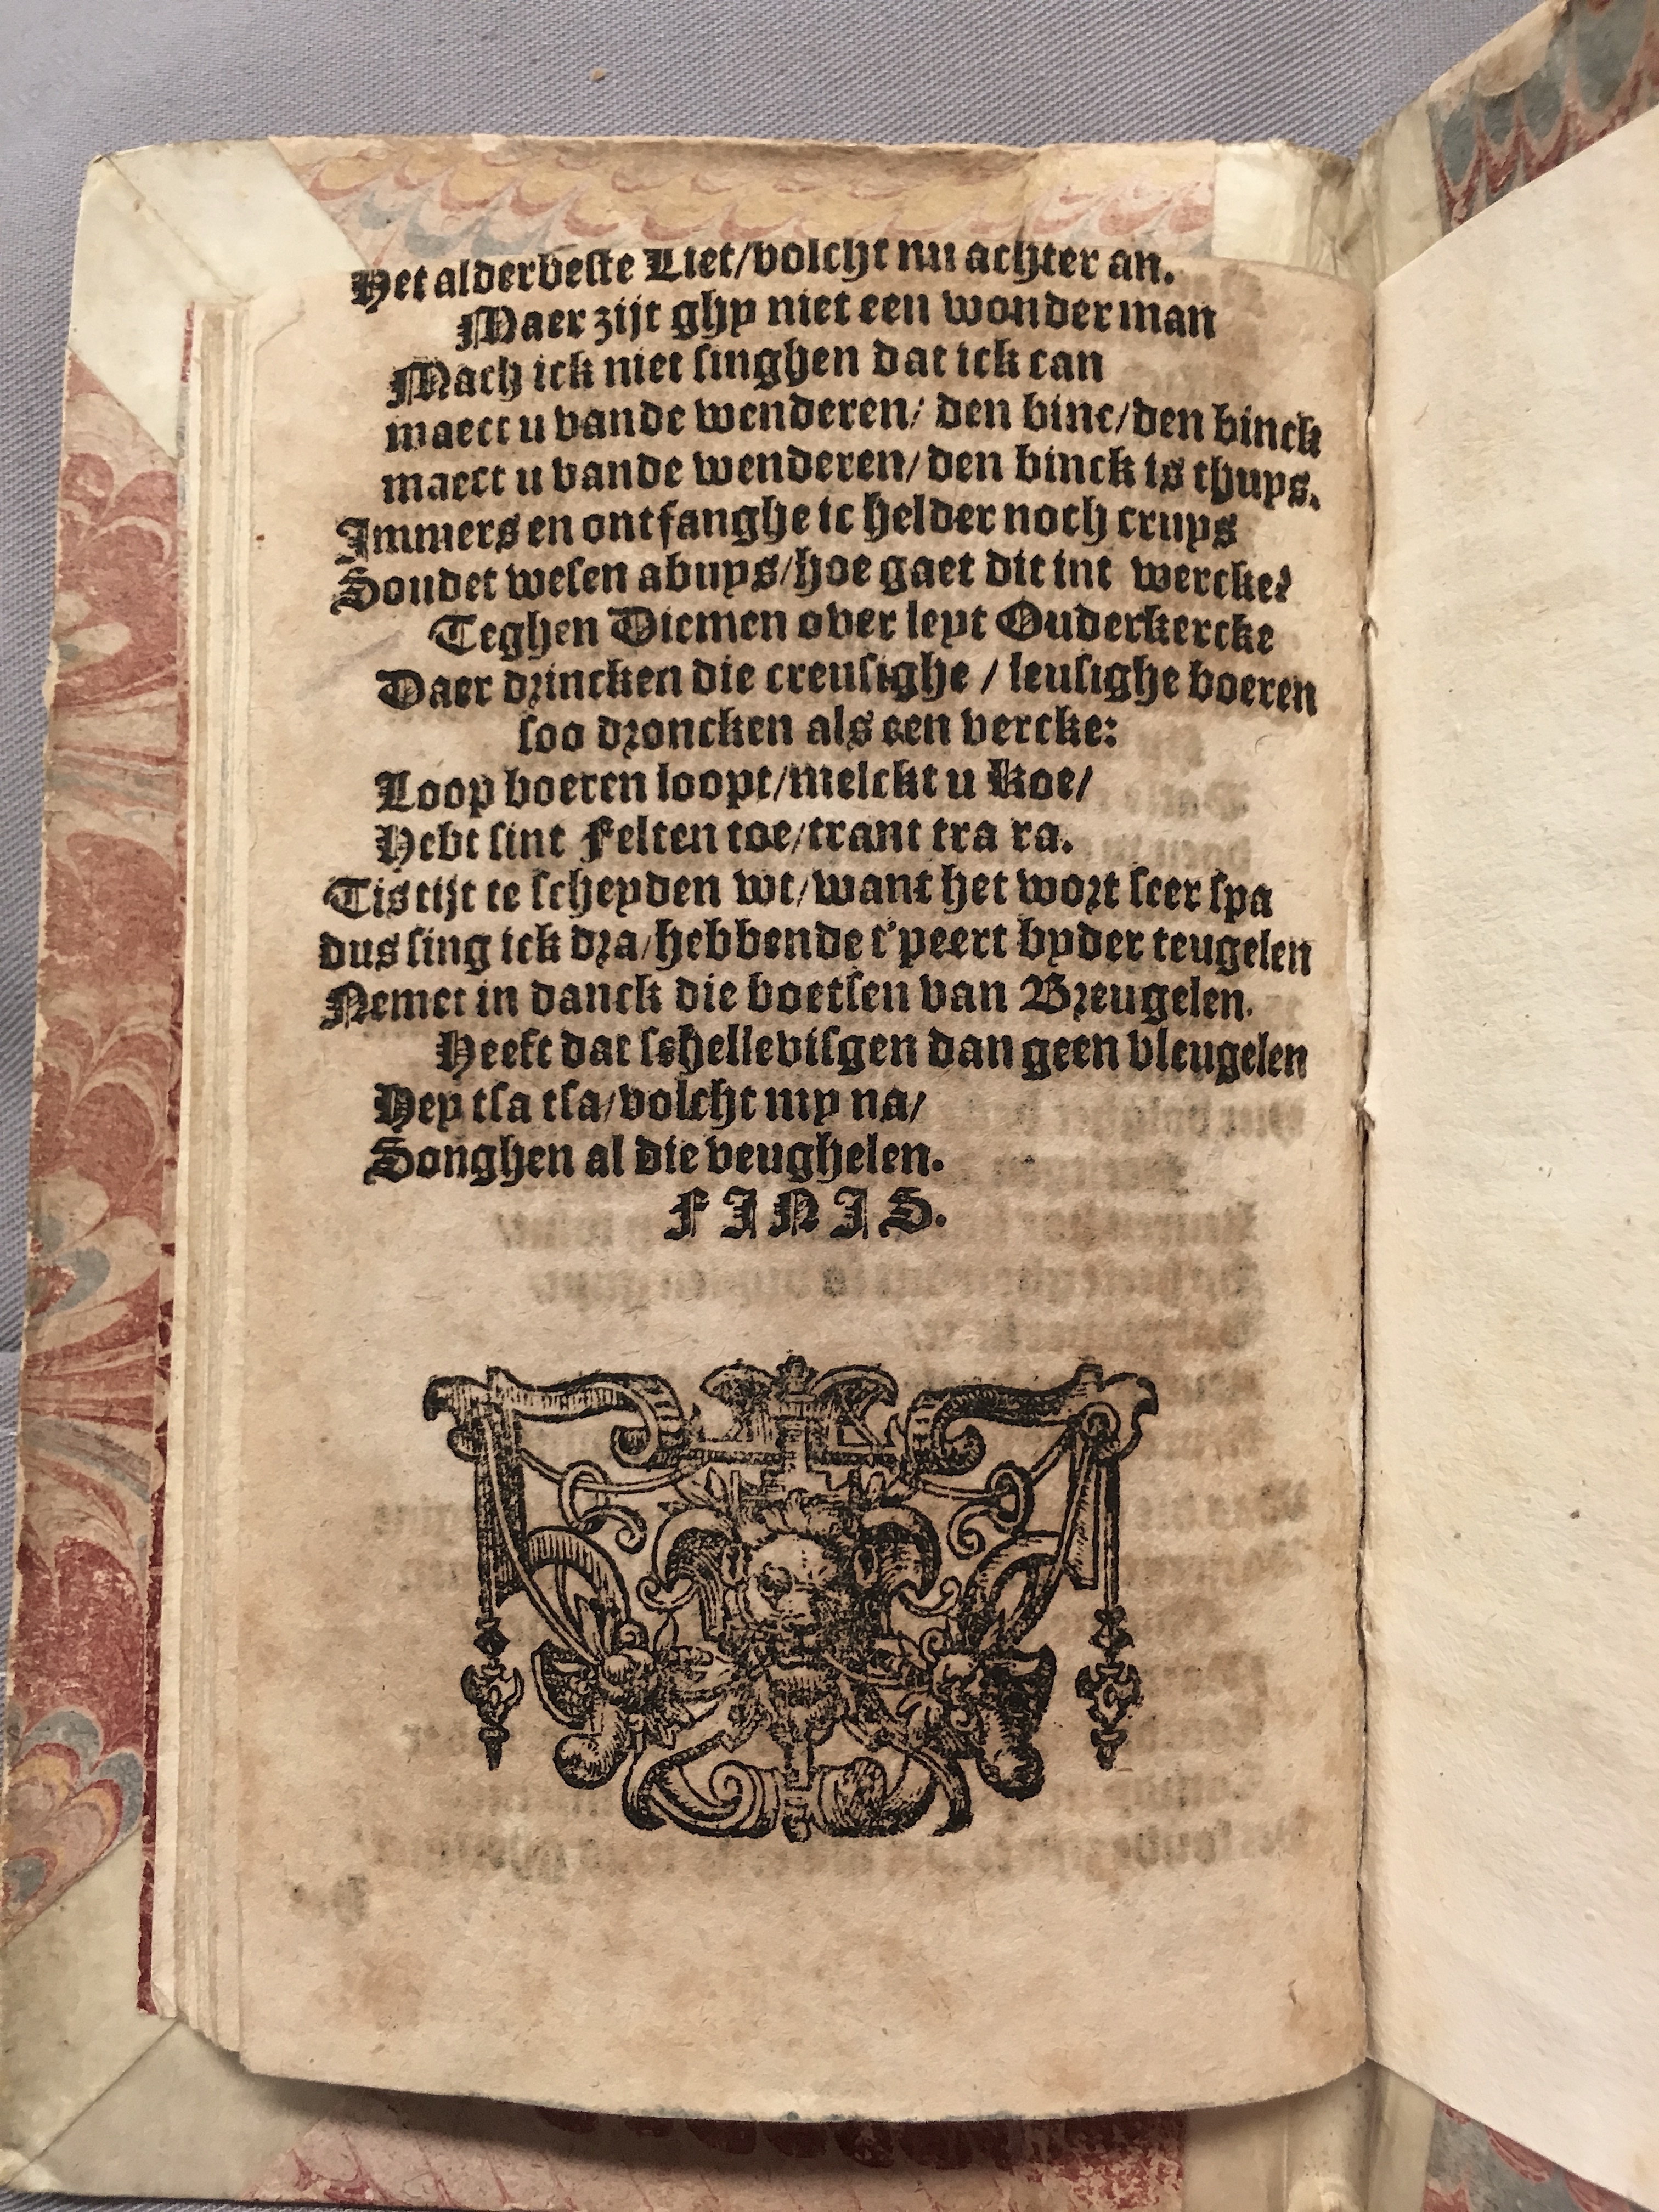 Het alderbeste Liet/volcht nu achter an.
Maer zijt ghy niet een wonder man
Mach ick niet singhen dat ick can
maect u vande wenderen/ den binc/den binck
maect u vande wenderen/den binck is thuys.
Immers en ontfanghe ic helder noch cruys
Soudet wesen abuys/hoe gaet dit int wercke?
Teghen Diemen over leyt Ouderkercke
Daer drincken die creusighe / leusighe boeren
soo droncken als een vercke:
Loop boeren loopt/melckt u Koe/
Hebt sint Felten toe/trant tra ra.
Tis tijt te scheyden wt/want het wort seer spa
dus sing ick dra/hebbende t'peert byder teugelen
Nemet in danck die boetsen van Breugelen.
Heeft dat schellevisgen dan geen vleugelen
Hey tsa tsa/volcht my na/
Songhen al die veughelen.
FINIS.